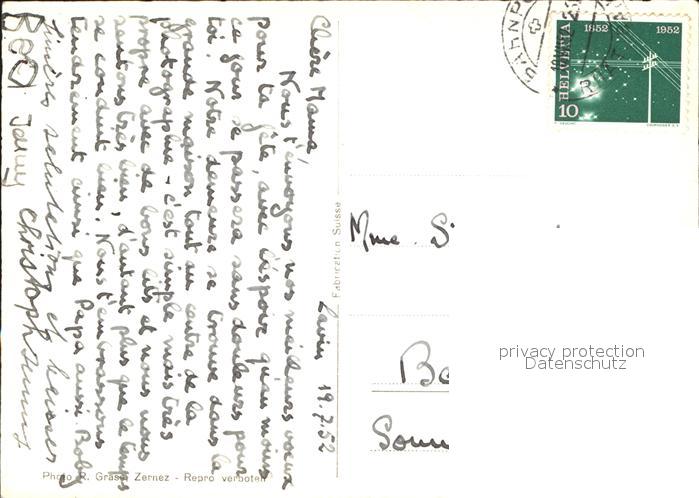 Lavin 19.7.52
Chère Mama,
Nous t'envoyons nos meilleurs voeux
pour ta fête, avec l'éspoir qu'au moins
ce jour se passera sans douleurs pour
toi. Notre demeure se trouve dans la
grande maison tout au centre de la
photographie - c'est simple mais très
propre avec de bons lits et nous nous
sentons très bien, d'autant plus que le temps
se conduit bien. Nous t'embrassons
tendrement ainsi que Papa aussi. Boby
salutations et baisers
Jenny Christoph
Photo R. Grass, Zernez - Repro verboten
Fabrication Suisse
HELVETIA
1852 1952
10
Mme. S
Be
Sonn
privacy protection
Datenschutz